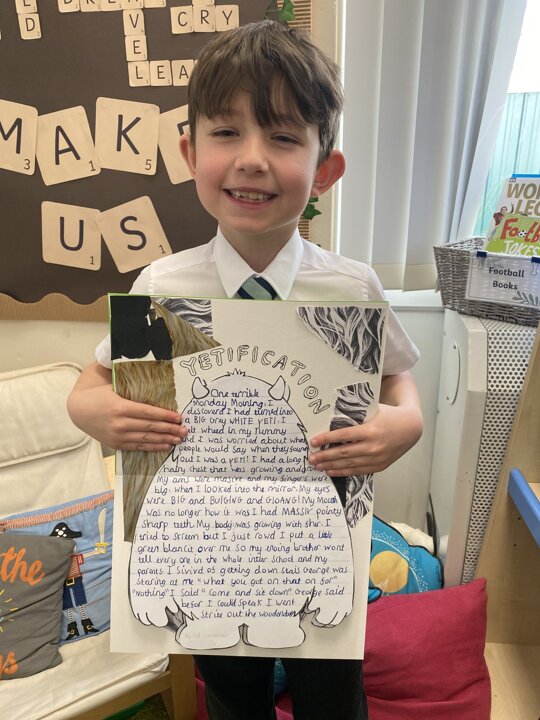 CRY
LEA
MAKE
US
WO
LEG
Football
JOKES
Football
Books
the
YETIFICATION
One terrible
Monday Morning. I
discoverd I had turned into
a BIG Grey WHITE YETI. I
felt wheird in my tummy
and I was worried about what
people would say when they found
out I was a YETI! I had a long
hairy chest that was growing and growing
My arms were massive and my fingers were
big. When I looked into the mirror. My eyes
were BIG and BULGING and GLOANG! My Mouth
was no longer how it was I had MASSIV pointy
sharp teeth. My body was growing with
tried to screem but I just rowd I put a little
green blancit over me so my enoing brother wont
tell every one in the whole inter school and my
parents. I survivd 05 getting down stals George was
staring at me "what you got on that on for"
"Nothing" I said "come and sit down" George said
befor I could speak I went
strite out the wooden door